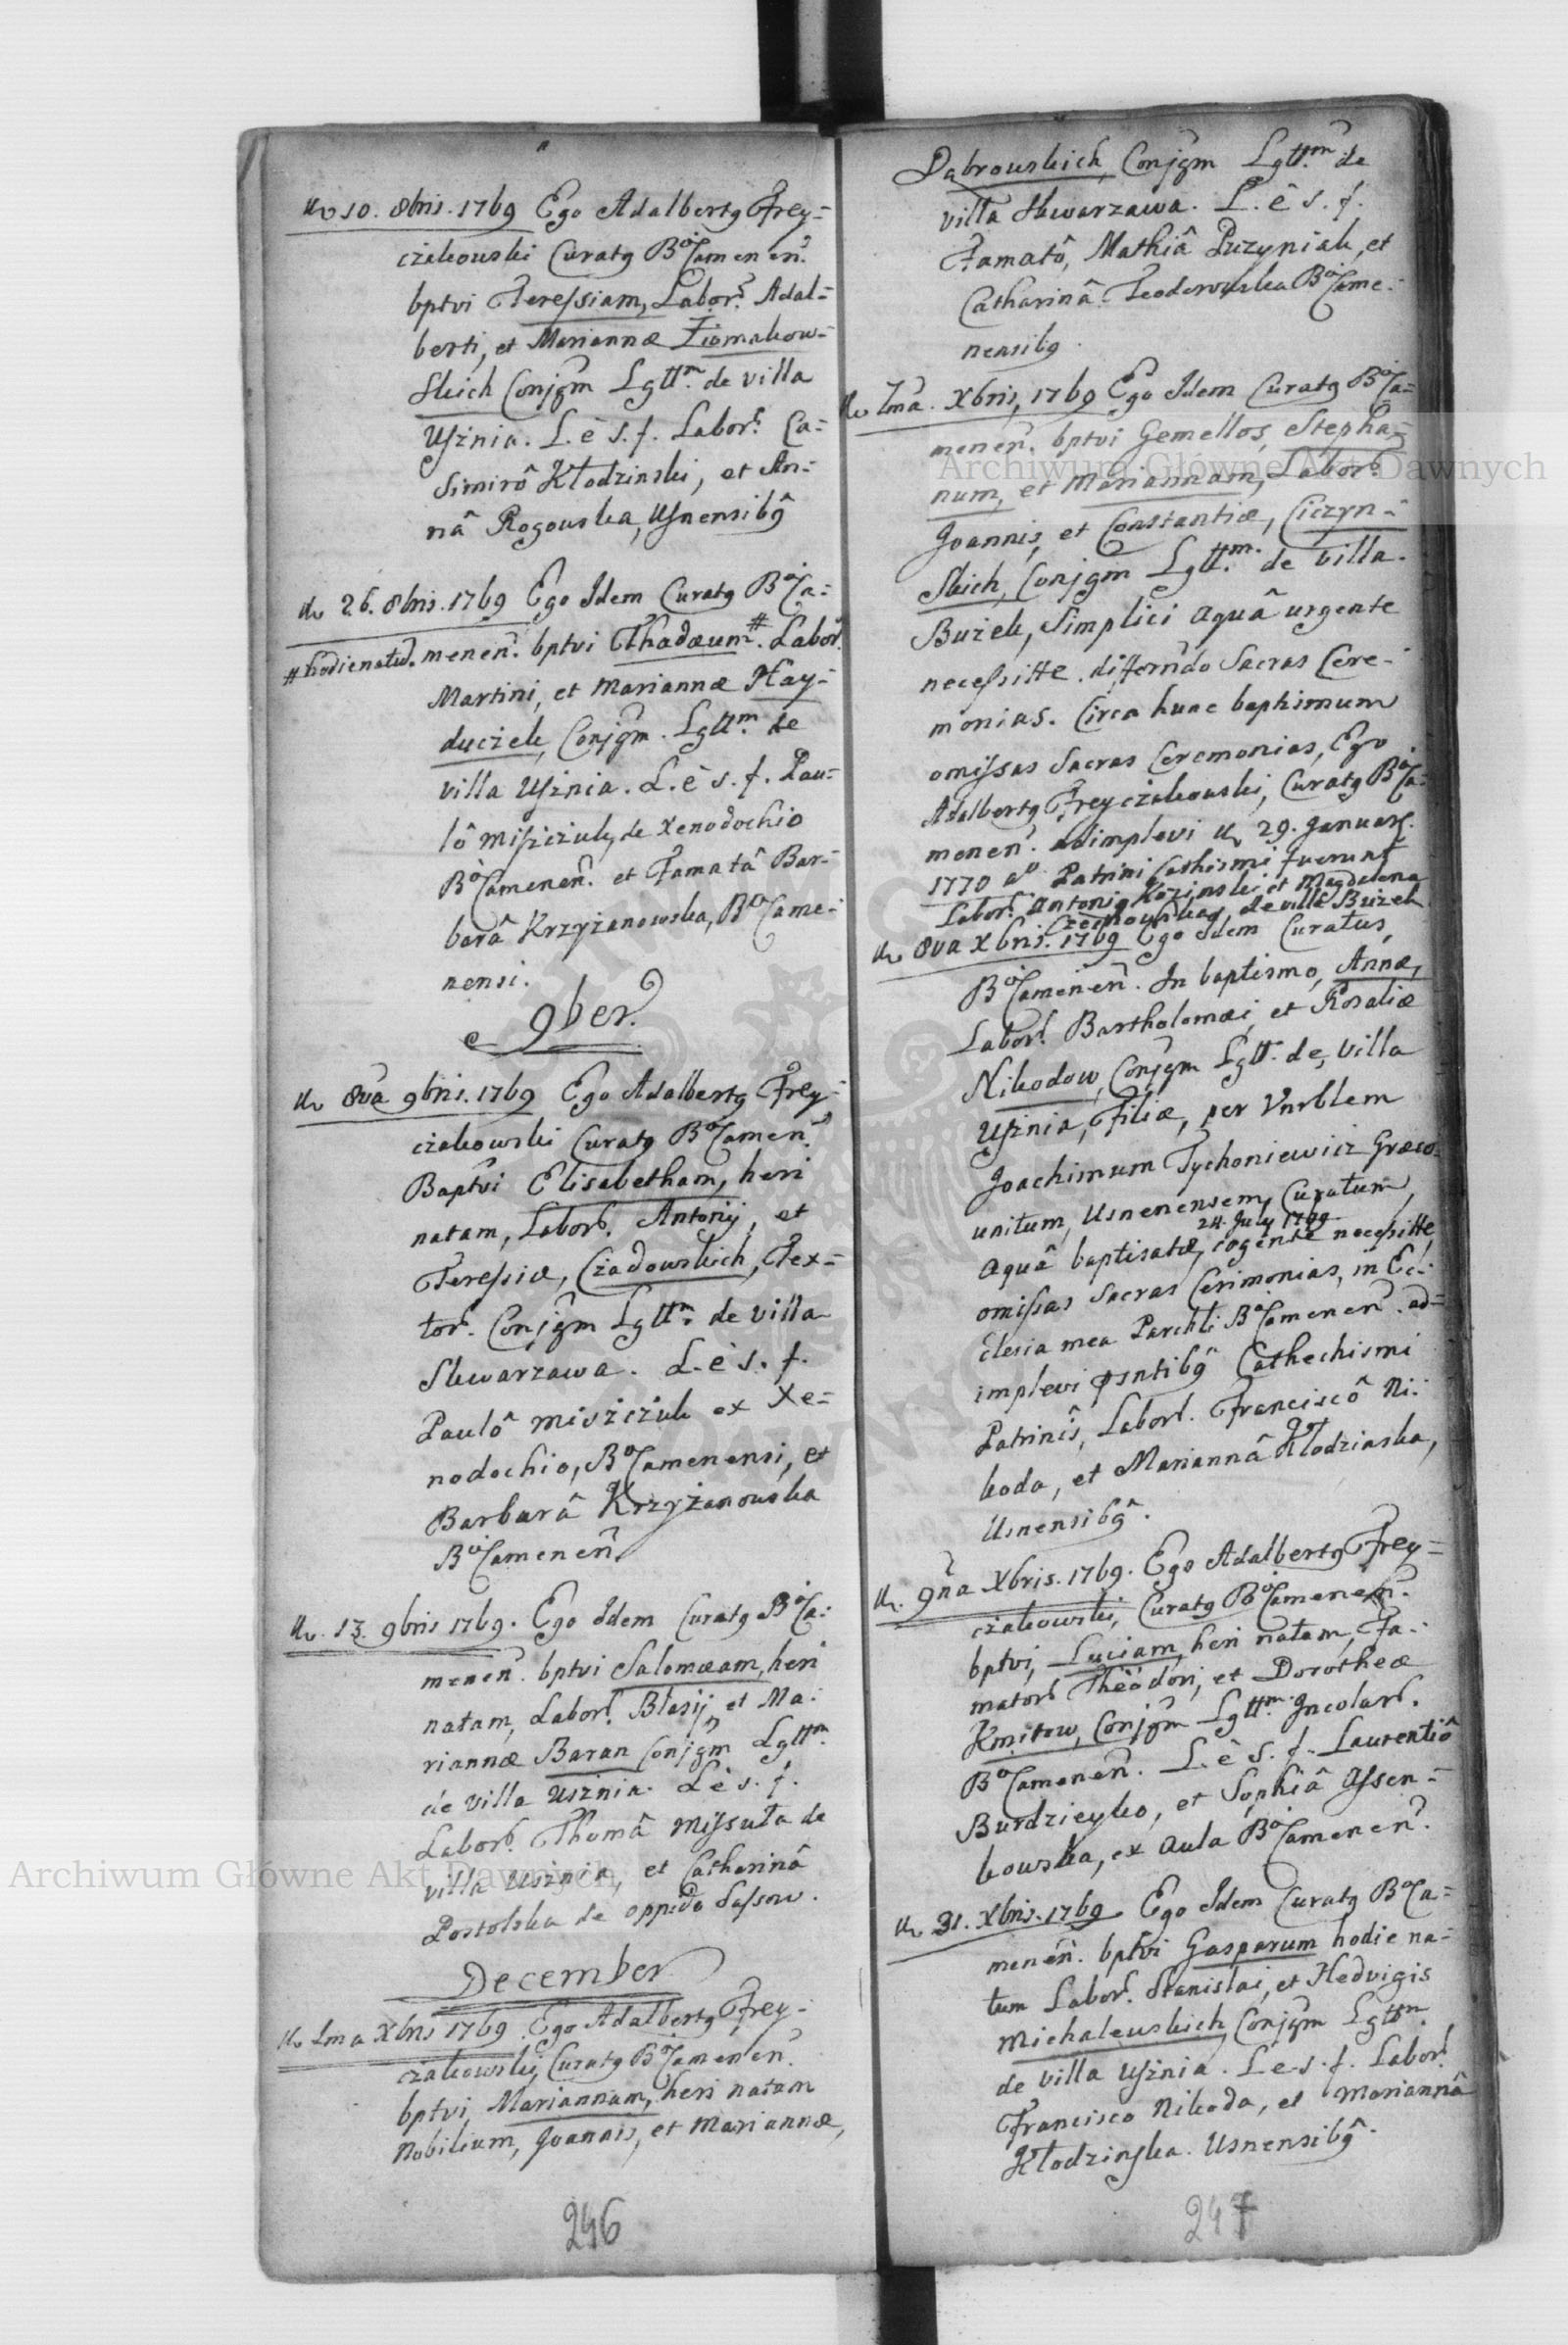 10. 8bris. 1769 Ego Adalbertg Frey=
cżakowski Curatg BoCamenen.
bptvi Teressiam, Labor. Adal=
berti, et Mariannæ Ziomakow=
skich Conjgm Lgttm. de villa
Usznia. L. è s. f. Labor. Ca=
simirô Kłodzinski, et An=
nâ Rogowska, Usnensibg
26. 8bris. 1769 Ego Idem Curatg BoCa=
# hodie natu. menen. bptvi Thadæum #. Labor.
Martini, et Mariannæ Hay=
duczek, Conjgm. Lgttm. de
villa Usznia. L. è s. f. Pau=
lô Misiczuk, de Xenodochio
BoCamenen. et Famatâ Bar=
barâ Krzyżanowska, BoCame=
nensi.
9ber.
8va 9bris. 1769 Ego Adalbertg Frey=
cżakowski Curatg BoCamen.
Baptvi Elisabetham, heri
natam, Labor. Antonij, et
Teressiæ, Cżadowskich, Tex=
tor. Conjgm Lgttm. de villa
Skwarzawa. L. è s. f.
Paulô Misiczuk ex Xe=
nodochio, BoCamenensi, et
Barbarâ Krzyżanowska
BoCamenen.
13. 9bris 1769. Ego Idem Curatg BoCa=
menen. bptvi Salomæam, heri
natam, Labor. Blasij et Ma=
riannæ Baran Conjgm Lgttm.
de villa Usznia. L. è s. f.
Labor. Thomâ Missuła de
villa Usznia, et Catharinâ
Postolska de oppido Sassow.
December
1ma Xbris 1769. Ego Adalbertg Frey=
cżakowski, Curatg BoCamenen.
bptvi Mariannam, heri natam
Nobilium, Joannis, et Mariannæ,
246
Dąbrowskich, Conjgm Lgttm. de
villa Skwarzawa. L. è s. f.
Famatô, Mathiâ Puzyniak, et
Catharinâ Teodorowska BoCame=
nensibg.
7ma. Xbris, 1769 Ego Idem Curatg BoCa=
menen. bptvi Gemellos, Stepha=
num, et Mariannam, Labor.
Joannis, et Constantiæ, Ciczyn=
skich, Conjgm Lgttm. de villa.
Bużek, Simplici aquâ urgente
necessitte. differndo Sacras Cere=
monias. Circa hunc baptismum
omissas Sacras Ceremonias, Ego
Adalbertg Freyczakowski, Curatg BoCa=
menen. adimplevi 29. Januarj.
1770 ao Patrini Cathismi fuerunt
Labor. Antonig Kozinski et Magdalena
de villa Bużek
8va Xbris. 1769 Ego Idem Curatus,
BoCamenen. In baptismo, Annæ,
Labor. Bartholomæi, et Rosaliæ
Nikodow, Conjgm Lgtt. de, villa
Usznia, Filiæ, per Vnrblem
Joachimum Tychoniewicz Græco=
unitum, Usnenensem, Curatum,
24. July 1769
aquâ baptisatæ, cogente necessitte,
omissas Sacras Cerimonias, in Ec=
clesia mea Parchli BoCamenen. ad=
implevi psntibg Cathechismi
Patrinis, Labor. Franciscô Ni=
koda, et Mariannâ Kłodzinska,
Usnensibg.
9na Xbris. 1769. Ego Adalbertg Frey=
cżakowski, Curatg BoCamenen.
bptvi, Luciam, heri natam, Fa=
mator. Theodori, et Dorotheæ
Kmitow, Conjgm Lgttm. Incolar.
BoCamenen. L. è s. f. Laurentiô
Burdzieyko, et Sophiâ Assen=
kowska, ex Aula BoCamenen.
31. Xbris. 1769. Ego Idem Curatg BoCa=
menen. bptvi Gasparum hodie na=
tum Labor. Stanislai, et Hedvigis
Michalewskich, Conjgm Lgttm.
de villa Usznia. L. è. s. f. Labor.
Francisco Nikoda, et Mariannâ
Kłodzinska. Usnensibg.
247
Archiwum Główne Akt Dawnych
Archiwum Główne Akt Dawnych